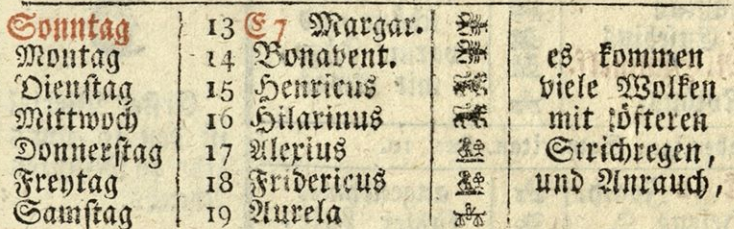 Sonntag 13 E 7 Margar.
Montag 14 Bonavent. es kommen
Dienstag 15 Henricus viele Wolken
Mittwoch 16 Hilarinus mit öfteren
Donnerstag 17 Alexius Strichregen,
Freytag 18 Fridericus und Anrauch,
Samstag 19 Aurela